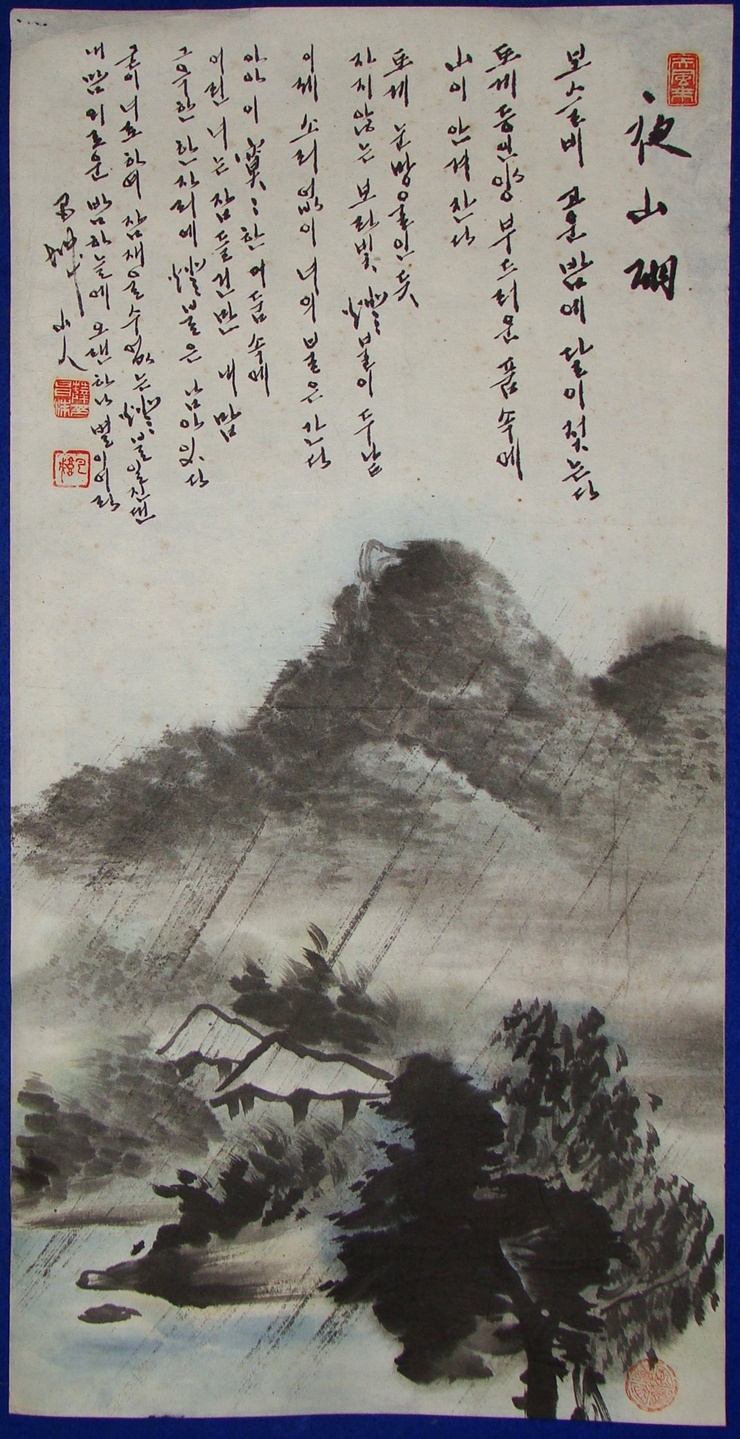 夜山
보슬비 고운 밤에 달이 젖는다
등인양 부드러운 품 속에
山이 안겨 잔다
눈망울인 듯
자지 않는 보라빛 燈불이 두남
이제 소리 없이 너의 불은 간다
아아 이 寞寞한 어둠 속에
어린 너는 잠들건만 내 맘
그윽한 한자리에 燈불은 남아있다
굳이 너로 하여 잠재울 수 없는 燈불일진댄
내 맘 외로운 밤하늘에 오랜 하나 별이어라
山人